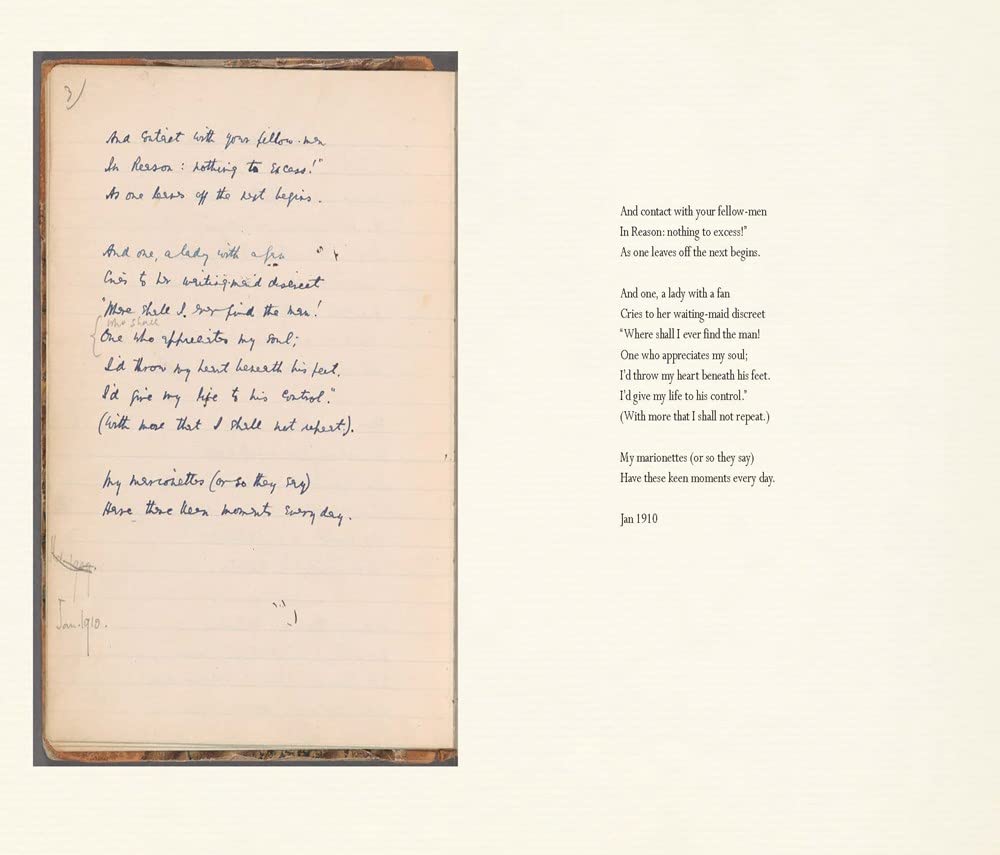 3)
And contact with your fellow-men
In Reason: nothing to excess!"
As one leaves off the next begins.
And one, a lady with a fan
Cries to her waiting-maid discreet
"Where shall I ever find the man!
who shall
One who appreciates my soul;
I'd throw my heart beneath his feet.
I'd give my life to his control."
(With more that I shall not repeat.).
My marionettes (or so they say)
Have these keen moments every day.
Jan. 1910.
And contact with your fellow-men
In Reason: nothing to excess!”
As one leaves off the next begins.
And one, a lady with a fan
Cries to her waiting-maid discreet
“Where shall I ever find the man!
One who appreciates my soul;
I’d throw my heart beneath his feet.
I’d give my life to his control.”
(With more that I shall not repeat.)
My marionettes (or so they say)
Have these keen moments every day.
Jan 1910